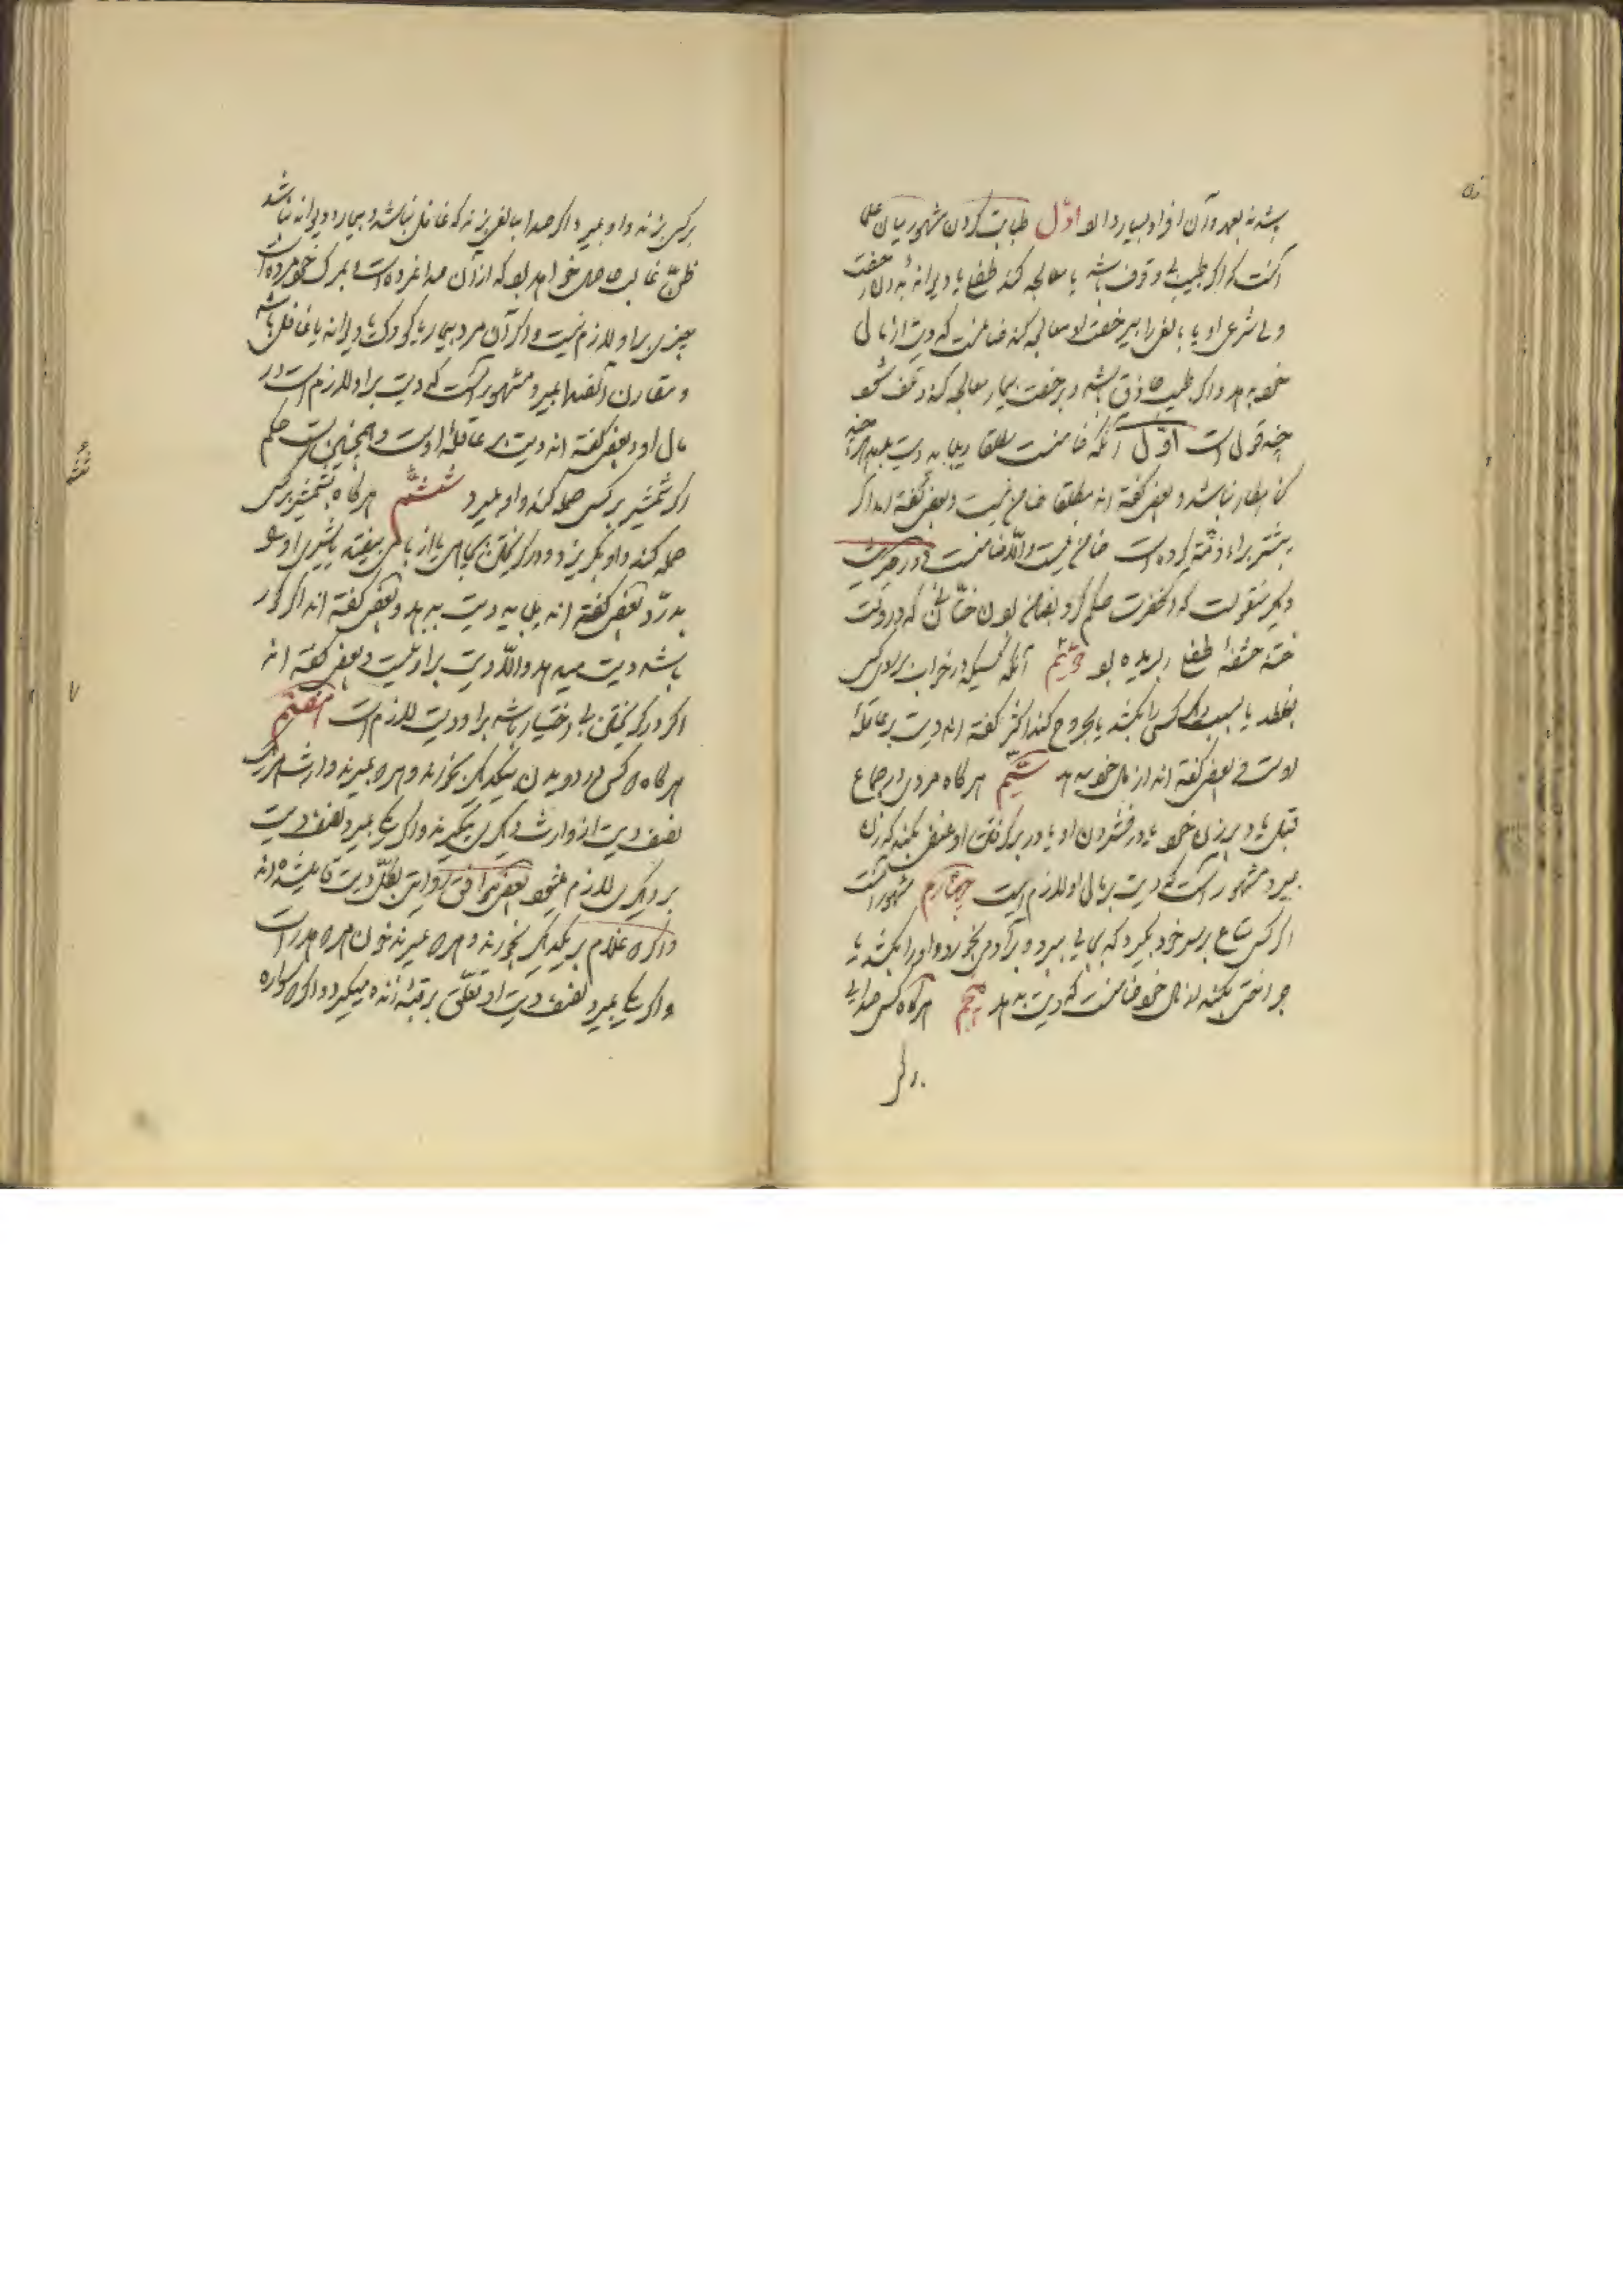 باشد نه بعمد و آن افراد بسیار دارد اوّل طبابت کردن مشهور میان علما
آنست که اگر طبیب بی وقوف باشد یا معالجه کند طفلی یا دیوانهٔ بی رخصت
ولی شرعی او یا بالغی را بی رخصت او معالجه کند ضامنست که دیت از مال
خود بدهد و اگر طبیب حاذق باشد و برخصت بیمار معالجه کند و تلف شود
چند قولست اوّل آنکه ضامنست مطلقا و میباید دیت بدهد هر چند
گناهکار نباشد و بعضی گفته اند مطلقا ضامن نیست و بعضی گفته اند اگر
پیشتر براء ذمّه کرده است ضامن نیست و الّا ضامنست و در حدیث
دیگر منقولست که آنحضرت حکم کرد بضامن بودن ختّانی که در وقت
ختنه حشفهٔ طفلی را بریده بود دویّم آنکه کسیکه در خواب بر روی کسی
بغلطد یا بسبب کسی را بکشد یا مجروح کند اکثر گفته اند دیت بر عاقلهٔ
اوست و بعضی گفته اند از مال خود میدهد سیّم هرگاه مردی در جماع
قبل یا دبر زن خود یا در فشردن او یا در بر گرفتن او عنفی بکند که زن
بمیرد مشهور آنست که دیت بر مال او لازم است چهارم مشهور آنست
اگر کسی متاع بر سر خود بگیرد که بجایی ببرد و بر آدمی بخورد و او را بکشد یا
جراحتی بکند از مال خود ضامنست که دیت بدهد پنجم هرگاه کسی صدایی
بر کسی بزند و او بمیرد اگر صدا ببالغی بزند که غافل نباشد و بیمار و دیوانه نباشد
ظنّ غالب حاصل خواهد بود که از آن صدا نمرده است و بمرگ خود مرده است
چیزی بر او لازم نیست و اگر آن مرد بیمار یا کودک یا دیوانه یا غافل باشد
و مقارن آنصدا بمیرد مشهور آنست که دیت بر او لازم است در
مال او و بعضی گفته اند دیت بر عاقلهٔ اوست و همچنین است حکم
اگر شمشیر بر کسی حمله کند و او بمیرد ششم هرگاه بشمشیر بر کسی
حمله کند و او بگریزد و در گریختن بچاهی یا از بامی بیفتد یا شیری او را
بدرّد بعضی گفته اند میباید دیت بدهد و بعضی گفته اند اگر کور
باشد دیت میدهد و الّا دیت بر او نیست و بعضی گفته اند
اگر در گریختن بی اختیار باشد بر او دیت لازم است هفتم
هرگاه دو کس در دویدن بیکدیگر بخورند و هر دو بمیرند وارث هر یک
نصف دیت از وارث دیگری میگیرند و اگر یکی بمیرد نصف دیت
بر دیگری لازم میشود و بعضی موافق روایتی بکلّ دیت قایل شده اند
و اگر دو غلام بر یکدیگر بخورند و هر دو بمیرند خون هر دو هدر است
و اگر یکی بمیرد نصف دیت او تعلّق برقبهٔ زنده میگیرد و اگر دو سواره